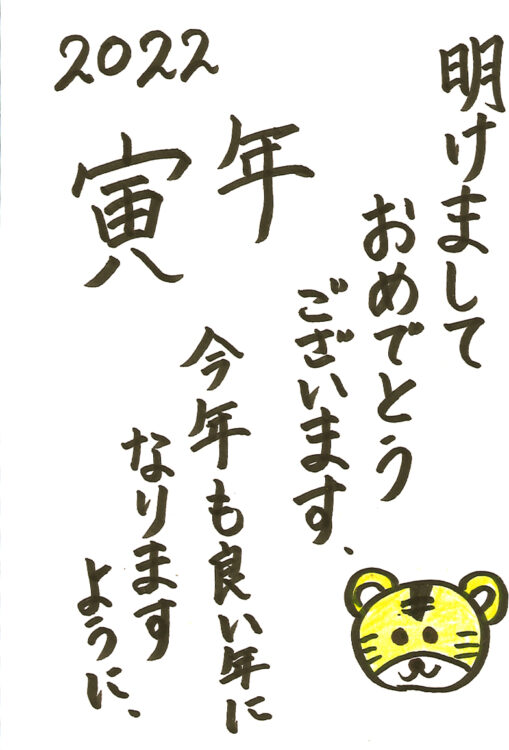 明けまして
おめでとう
ございます、
2022
寅年
今年も良い年に
なります
ように、